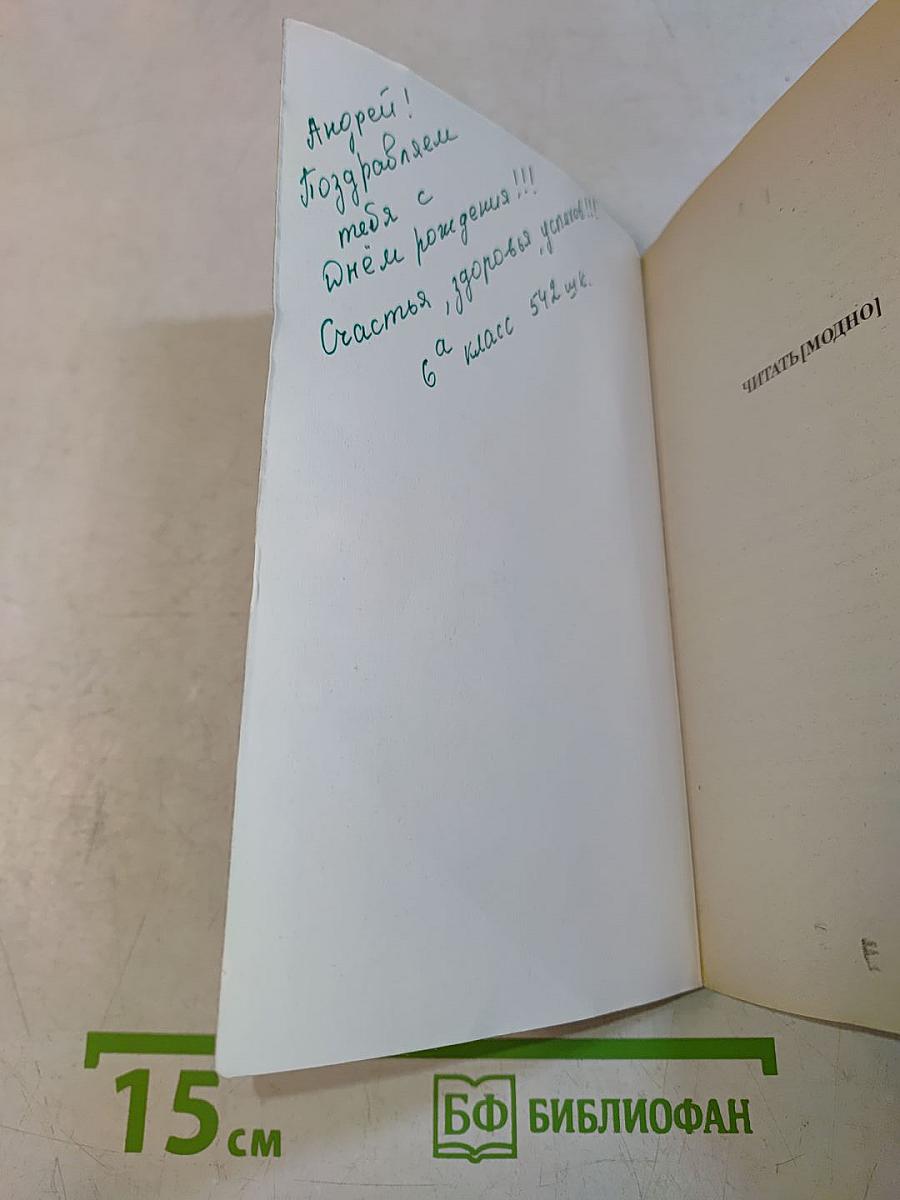 Андрей!
Поздравляем
тебя с
Днём рождения!!!
Счастья, здоровья, успехов!!!
6а класс 542 шк.
ЧИТАТЬ[МОДНО]
15 см
БФ БИБЛИОФАН